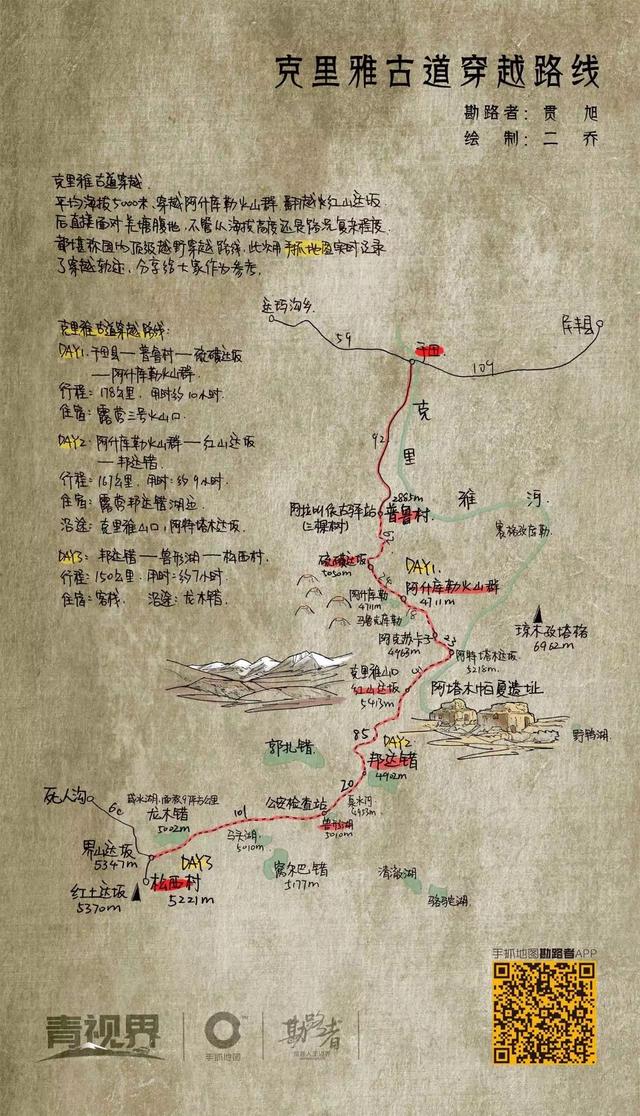 克里雅古道穿越路线
勘路者：贯 旭
绘 制：二 乔
克里雅古道穿越
平均海拔5000米，穿越阿什库勒火山群 翻越火红山达坂
后直接面对羌塘腹地，不管从海拔高度还是路况复杂程度
都堪称国内顶级越野穿越路线，此次用手抓地图实时记录
了穿越轨迹，分享给大家作为参考。
克里雅古道穿越路线：
DAY1：于田县—普鲁村—硫磺达坂
—阿什库勒火山群
行程：178公里，用时约10小时
住宿：露营三号火山口
DAY2：阿什库勒火山群—红山达坂
—邦达错
行程：167公里，用时：约9小时
住宿：露营邦达错湖边
沿途：克里雅山口，阿特塔木达坂
DAY3：邦达错—兽形湖—松西村
行程：150公里，用时：约7小时
住宿：客栈 沿途：龙木错
达玛沟乡
59
于田
109
民丰县
92
克
里
雅
河
2885m
普鲁村
(三棵树)
硫磺达坂
5050m
DAY1
24
阿什库勒火山群
4711m
阿什库勒
4711m
乌鲁克库勒
18
阿克苏卡子
4963m
阿特塔木达坂
5218m
琼木孜塔格
6962m
克里雅山口
红山达坂
5413m
阿塔木帕夏遗址
85
DAY2
邦达错
4902m
野鸭湖
郭扎错
20
泉水河
公安检查站
兽形湖
5010m
101
死人沟
龙木错
5002m
马头湖
5010m
界山达坂
5347m
DAY3
松西村
5221m
红土达坂
5370m
窝尔巴错
5177m
清澈湖
骆驼湖
手抓地图勘路者APP
青视界
手抓地图
勘路者